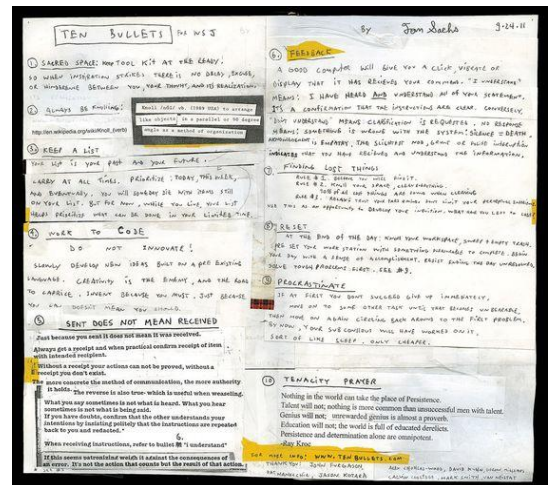 TEN BULLETS FOR NSJ
By Tom Sachs 9-24-11
① SACRED SPACE: Keep TOOL KIT AT THE READY,
SO WHEN INSPIRATION STRIKES THERE IS NO DELAY, ISSUE,
OR HINDERANCE BETWEEN YOU, YOUR THOUGHT, AND ITS REALIZATION.
② ALWAYS BE KNOLLING:
Knoll /nōl/ vb. (1989 USA) to arrange
like objects in a parallel or 90 degree
angle as a method of organization
http://en.wikipedia.org/wiki/Knoll_(verb)
③ KEEP A LIST
YOUR LIST IS YOUR PAST AND YOUR FUTURE.
CARRY AT ALL TIMES. PRIORITISE: TODAY, THIS WEEK,
AND EVENTUALLY. YOU WILL SOMEDAY DIE WITH ITEMS STILL
ON YOUR LIST. BUT FOR NOW, WHILE YOU LIVE, YOUR LIST
HELPS PRIORITISE WHAT CAN BE DONE IN YOUR LIMITED TIME.
④ WORK TO CODE
DO NOT INNOVATE!
SLOWLY DEVELOP NEW IDEAS BUILT ON A PRE EXISTING
LANGUAGE. CREATIVITY IS THE ENEMY, AND THE ROAD
TO CAPRICE. INVENT BECAUSE YOU MUST, JUST BECAUSE
YOU CAN DOESN'T MEAN YOU SHOULD.
⑤ SENT DOES NOT MEAN RECEIVED
Just because you sent it does not mean it was received.
Always get a receipt and when practical confirm receipt of item
with intended recipient.
Without a receipt your actions can not be proved, without a
receipt you don't exist.
The more concrete the method of communication, the more authority
it holds.
The reverse is also true- which is useful when weaseling.
What you say sometimes is not what is heard. What you hear
sometimes is not what is being said.
If you have doubts, confirm that the other understands your
intentions by insisting politely that the instructions are repeated
back to you and reduced."
6.
When receiving instructions, refer to bullet "i understand"
If this seems patronizing weigh it against the consequences of
an error. It's not the action that counts but the result of that action.
⑥ FEEDBACK
A GOOD COMPUTER WILL GIVE YOU A CLICK, VIBRATE OR
DISPLAY THAT IT HAS RECEIVED YOUR COMMAND. "I UNDERSTAND"
MEANS: I HAVE HEARD AND UNDERSTAND ALL OF YOUR STATEMENT.
IT'S A CONFIRMATION THAT THE INSTRUCTIONS ARE CLEAR. CONVERSELY,
UNDERSTAND" MEANS CLARIFICATION IS REQUESTED. NO RESPONSE
MEANS: SOMETHING IS WRONG WITH THE SYSTEM: SILENCE = DEATH.
IS EMPATHY. THE SLIGHTEST NOD, GRUNT OR
INDICATES THAT YOU HAVE RECEIVED AND UNDERSTAND THE INFORMATION.
⑦ FINDING LOST THINGS
RULE #1. BELIEVE YOU WILL FIND IT.
RULE #2. KNOW YOUR SPACE,
ARE FOUND WHEN CLEANING
RULE #3.
USE THIS AS AN OPPORTUNITY TO DEVELOP YOUR INTUITION.
⑧ RESET
AT THE END OF THE DAY: KNOLL YOUR WORKSPACE, SWEEP & EMPTY TRASH.
PRE SET YOUR WORK STATION WITH SOMETHING TO COMPLETE. BEGIN
YOUR DAY WITH A SENSE OF ACCOMPLISHMENT. RESIST ENDING THE DAY UNRESOLVED.
SOLVE TOUGH PROBLEMS FIRST. SEE #9.
⑨ PROCRASTINATE
IF AT FIRST YOU DON'T SUCCEED GIVE UP IMMEDIATELY,
MOVE ON TO SOME OTHER TASK UNTIL THAT BECOMES UNBEARABLE.
THEN MOVE ON AGAIN CIRCLING BACK AROUND TO THE FIRST PROBLEM.
BY NOW, YOUR SUBCONSCIOUS WILL HAVE WORKED ON IT.
SORT OF LIKE SLEEP, ONLY CHEAPER.
⑩ TENACITY PRAYER
Nothing in the world can take the place of Persistence.
Talent will not; nothing is more common than unsuccessful men with talent.
Genius will not; unrewarded genius is almost a proverb.
Education will not; the world is full of educated derelicts.
Persistence and determination alone are omnipotent.
-Ray Kroc
FOR MORE INFO: WWW.TENBULLETS.COM